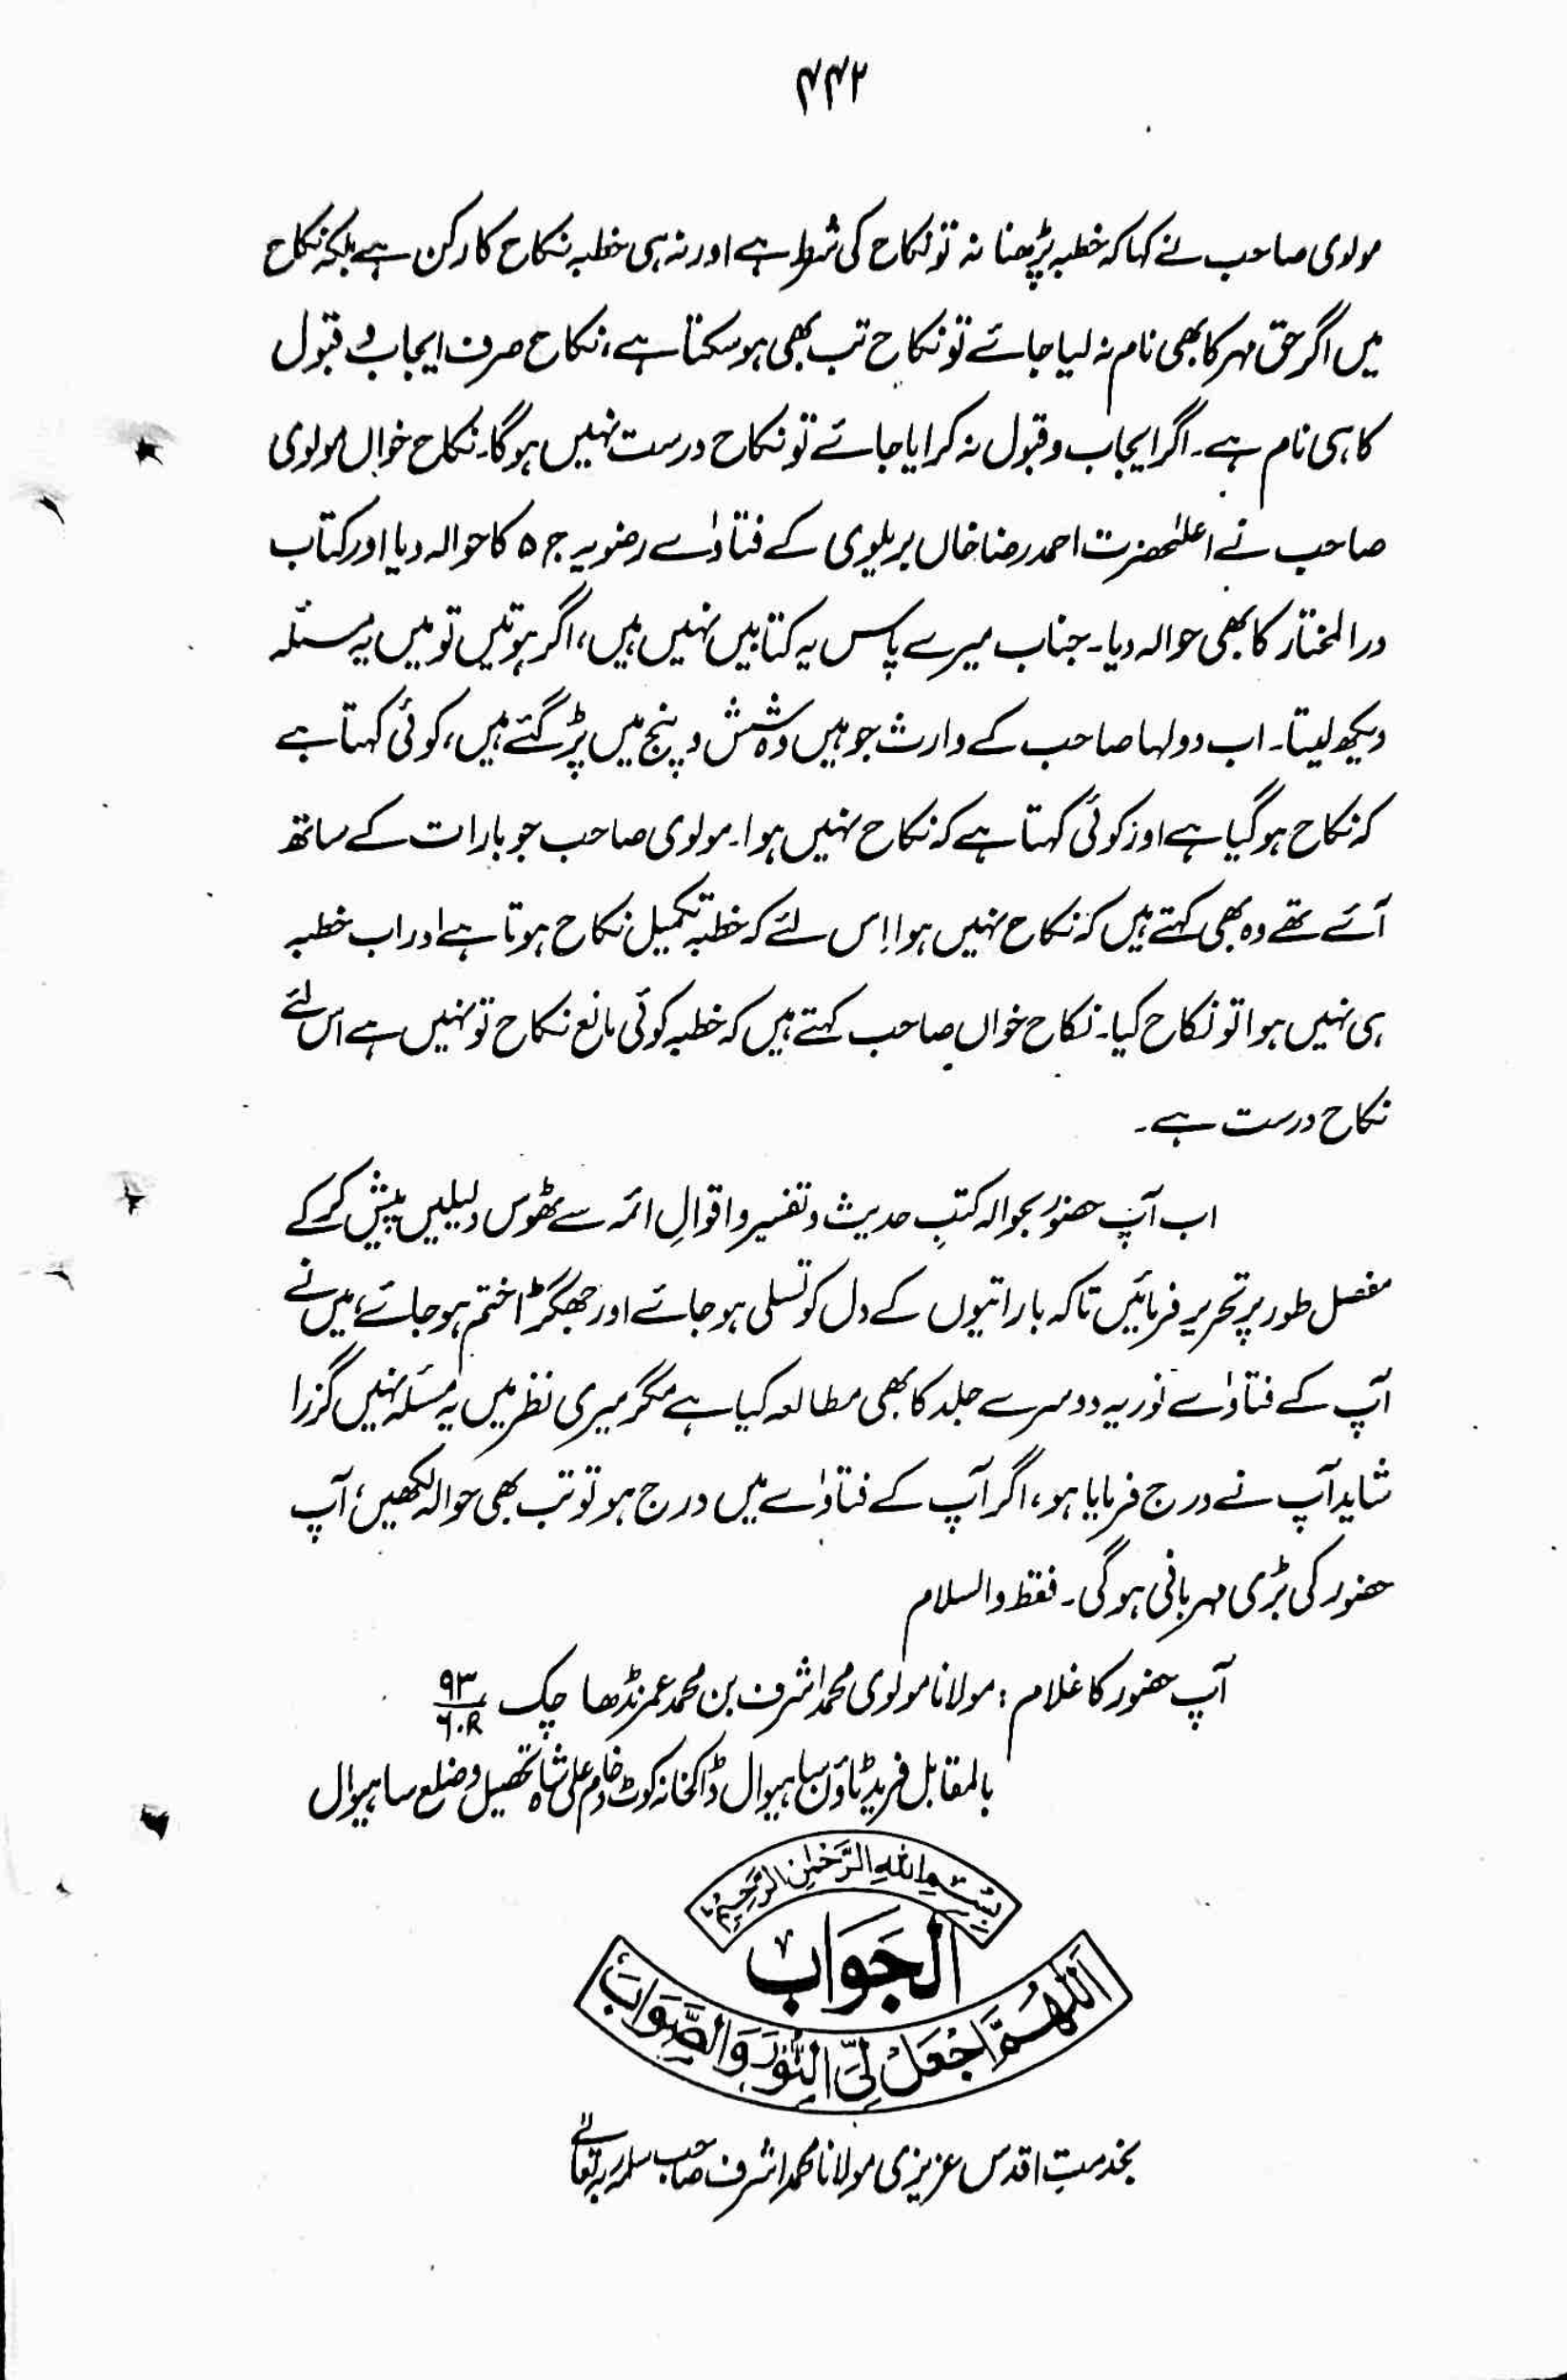 ۴۴۲
مولوی صاحب نے کہا کہ خطبہ پڑھنا نہ تو نکاح کی شرط ہے اور نہ ہی خطبہ نکاح کا رکن ہے بلکہ نکاح
میں اگر حق مہر کا بھی نام نہ لیا جائے تو نکاح تب بھی ہو سکتا ہے، نکاح صرف ایجاب و قبول
کا ہی نام ہے۔ اگر ایجاب و قبول نہ کرایا جائے تو نکاح درست نہیں ہوگا۔ نکاح خواں مولوی
صاحب نے اعلیٰحضرت احمد رضا خاں بریلوی کے فتاوٰے رضویہ ج ۵ کا حوالہ دیا اور کتاب
درالمختار کا بھی حوالہ دیا۔ جناب میرے پاس یہ کتابیں نہیں ہیں، اگر ہوتیں تو میں یہ مسئلہ
دیکھ لیتا۔ اب دولہا صاحب کے وارث جو ہیں وہ شش و پنج میں پڑ گئے ہیں، کوئی کہتا ہے
کہ نکاح ہو گیا ہے اور کوئی کہتا ہے کہ نکاح نہیں ہوا۔ مولوی صاحب جو بارات کے ساتھ
آئے تھے وہ بھی کہتے ہیں کہ نکاح نہیں ہوا اِس لئے کہ خطبہ تکمیل نکاح ہوتا ہے اور اب خطبہ
ہی نہیں ہوا تو نکاح کیا۔ نکاح خواں صاحب کہتے ہیں کہ خطبہ کوئی مانع نکاح تو نہیں ہے اس لئے
نکاح درست ہے۔
اب آپ حضور بحوالہ کتبِ حدیث و تفسیر و اقوالِ ائمہ سے ٹھوس دلیلیں پیش کر کے
مفصل طور پر تحریر فرمائیں تاکہ باراتیوں کے دل کو تسلی ہو جائے اور جھگڑا ختم ہو جائے، میں نے
آپ کے فتاوٰے نوریہ دوسرے جلد کا بھی مطالعہ کیا ہے مگر میری نظر میں یہ مسئلہ نہیں گزرا
شاید آپ نے درج فرمایا ہو، اگر آپ کے فتاوٰے میں درج ہو تو تب بھی حوالہ لکھیں، آپ
حضور کی بڑی مہربانی ہوگی۔ فقط والسلام
آپ حضور کا غلام : مولانا مولوی محمد اشرف بن محمد عمر نڈھا چک ۹۳/۶۰R
بالمقابل فرید ٹاؤن ساہیوال ڈاکخانہ کوٹ خادم علی شاہ تحصیل و ضلع ساہیوال
بِسْمِ اللهِ الرَّحْمٰنِ الرَّحِيْمِ
الجَوَابُ
اَللّٰهُمَّ اجْعَلْ لِيَ النُّوْرَ وَالصَّوَابَ
بخدمتِ اقدس عزیزی مولانا محمد اشرف صاحب سلمہ ربہ تعالےٰ